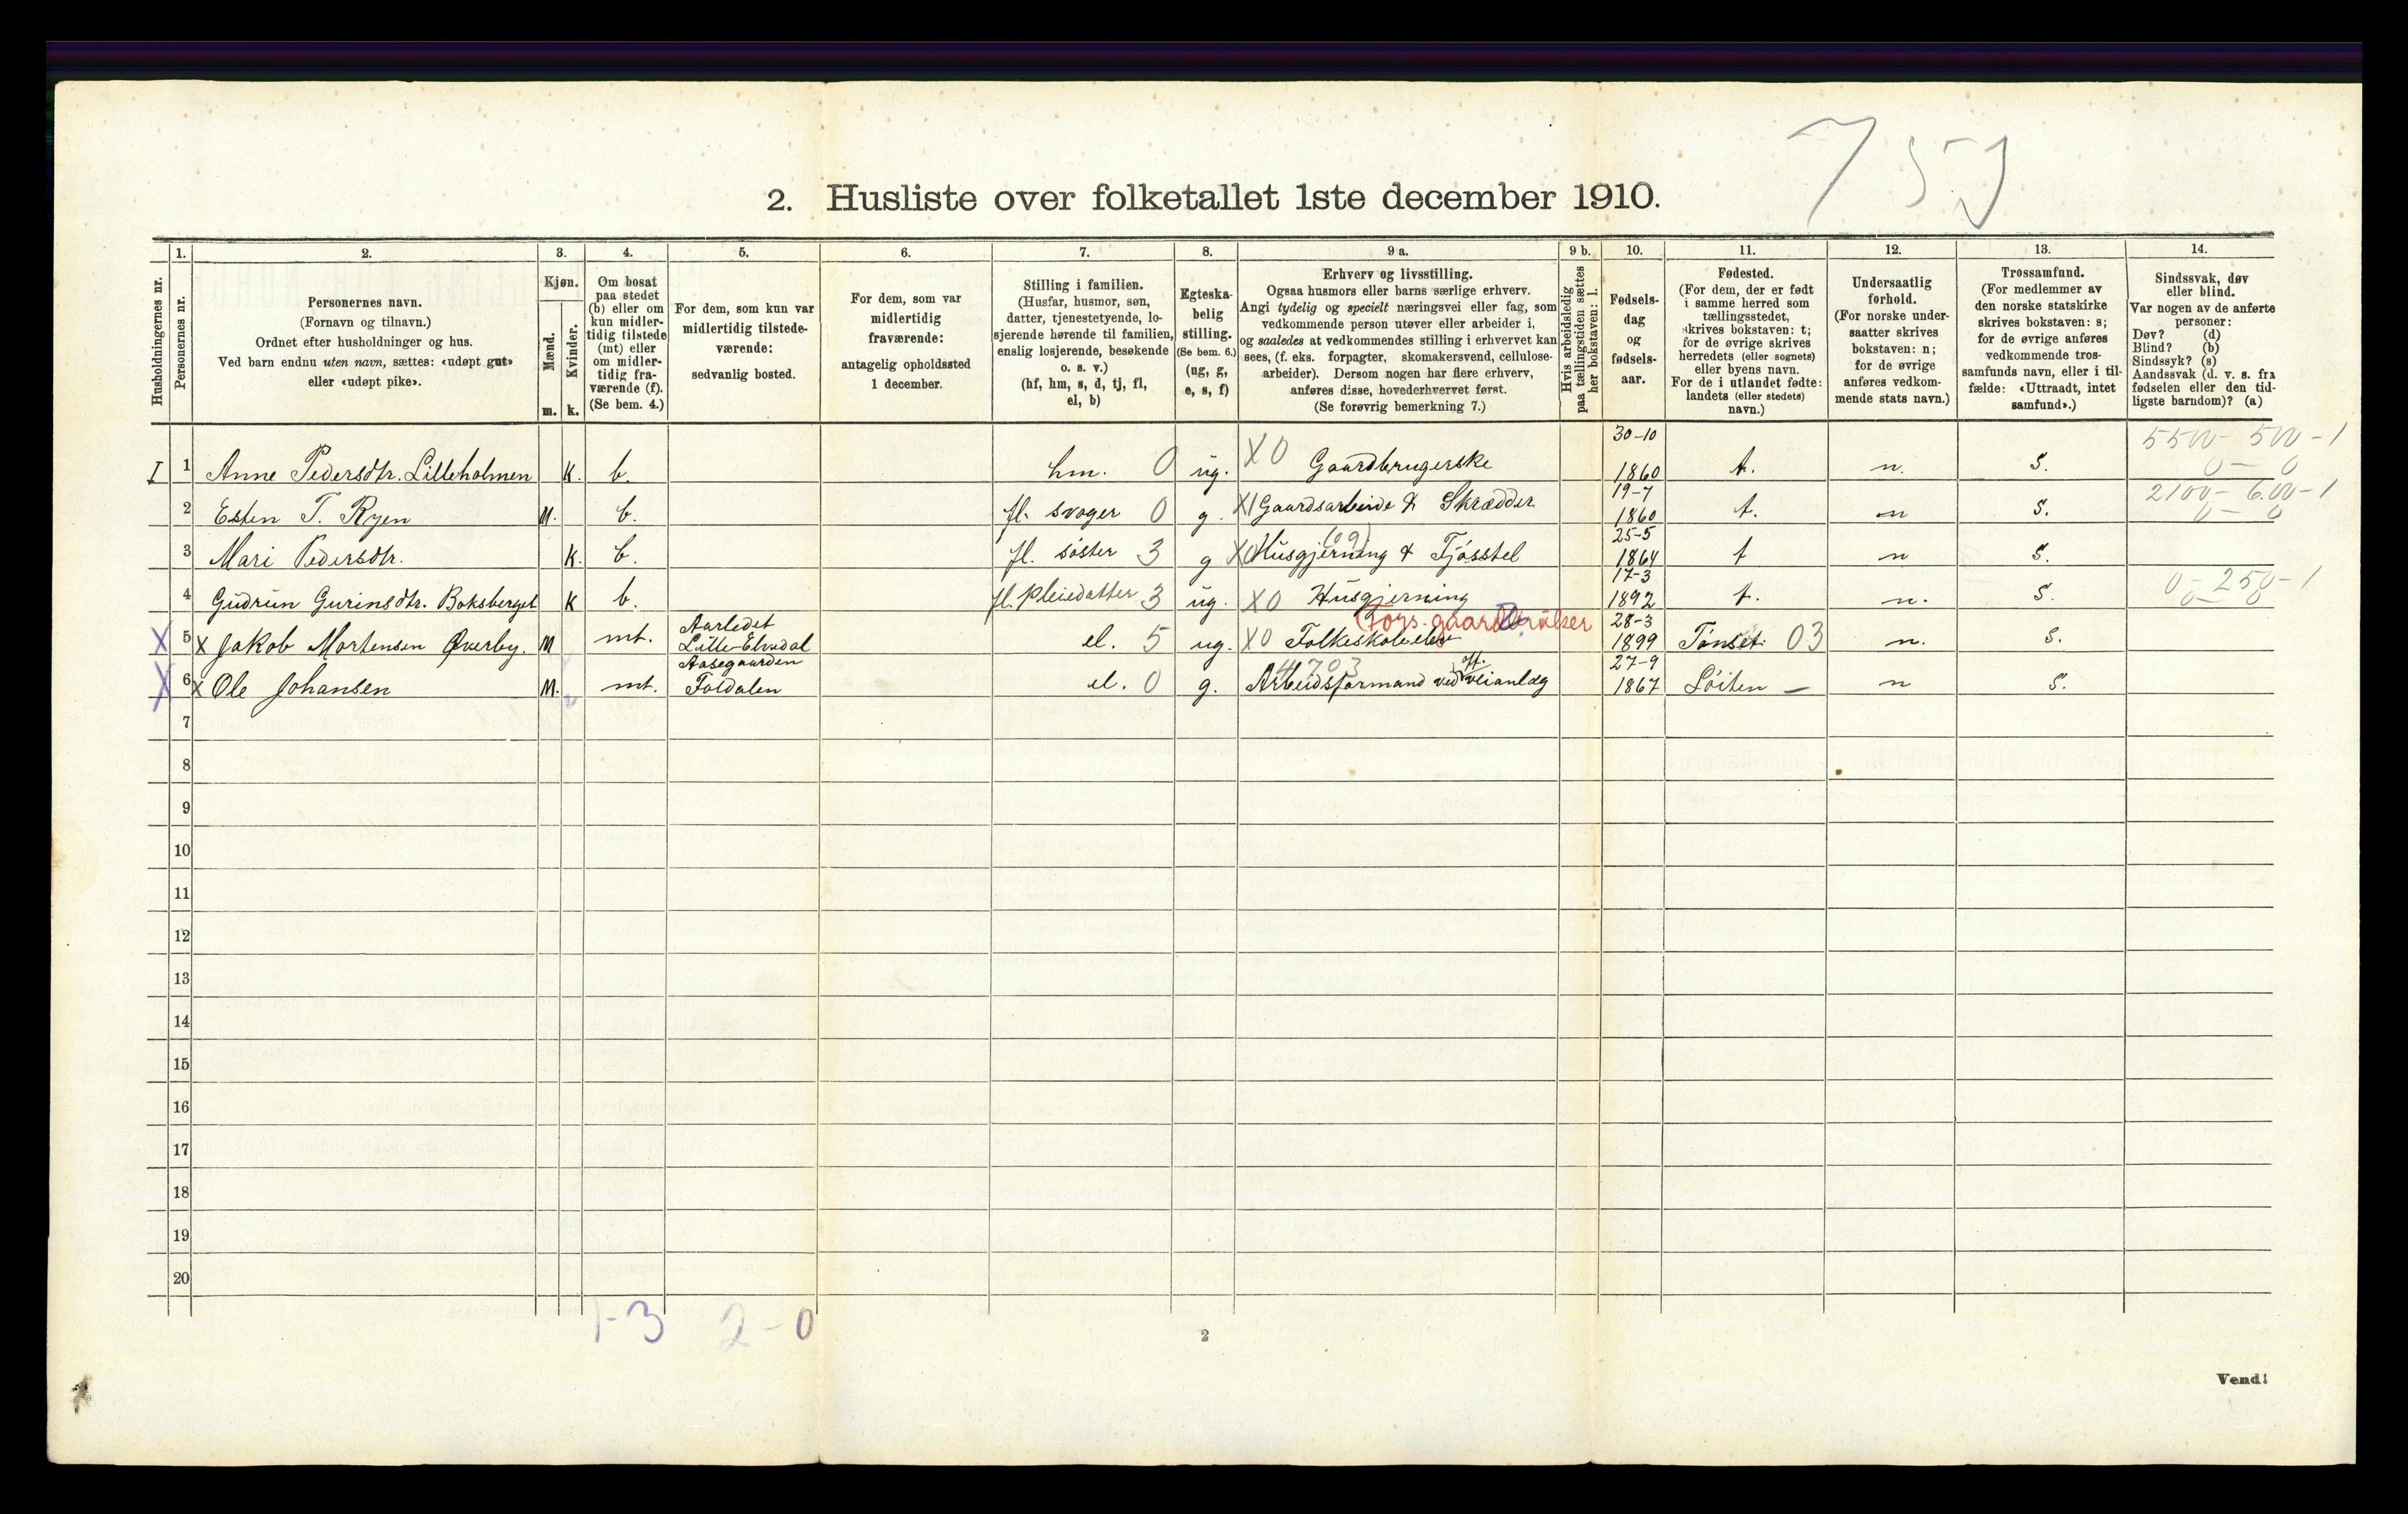 759
2. Husliste over folketallet 1ste december 1910.
1. 2. 3. 4. 5. 6. 7. 8. 9 a. 9 b. 10. 11. 12. 13. 14.
Husholdningernes nr.
Personernes nr.
Personernes navn.
(Fornavn og tilnavn.)
Ordnet efter husholdninger og hus.
Ved barn endnu uten navn, sættes: «udøpt gut»
eller «udøpt pike».
Kjøn.
Mænd.
Kvinder.
m. k.
Om bosat
paa stedet
(b) eller om
kun midler-
tidig tilstede
(mt) eller
om midler-
tidig fra-
værende (f).
(Se bem. 4.)
For dem, som kun var
midlertidig tilstede-
værende:
sedvanlig bosted.
For dem, som var
midlertidig
fraværende:
antagelig opholdssted
1 december.
Stilling i familien.
(Husfar, husmor, søn,
datter, tjenestetyende, lo-
sjerende hørende til familien,
enslig losjerende, besøkende
o. s. v.)
(hf, hm, s, d, tj, fl,
el, b)
Egteska-
belig
stilling.
(Se bem. 6.)
(ug, g,
e, s, f)
Erhverv og livsstilling.
Ogsaa husmors eller barns særlige erhverv.
Angi tydelig og specielt næringsvei eller fag, som
vedkommende person utøver eller arbeider i,
og saaledes at vedkommendes stilling i erhvervet kan
sees, (f. eks. forpagter, skomakersvend, cellulose-
arbeider). Dersom nogen har flere erhverv,
anføres disse, hovederhvervet først.
(Se forøvrig bemerkning 7.)
Hvis arbeidsledig
paa tællingstiden sættes
her bokstaven: l.
Fødsels-
dag
og
fødsels-
aar.
Fødested.
(For dem, der er født
i samme herred som
tællingsstedet,
skrives bokstaven: t;
for de øvrige skrives
herredets (eller sognets)
eller byens navn.
For de i utlandet fødte:
landets (eller stedets)
navn.)
Undersaatlig
forhold.
(For norske under-
saatter skrives
bokstaven: n;
for de øvrige
anføres vedkom-
mende stats navn.)
Trossamfund.
(For medlemmer av
den norske statskirke
skrives bokstaven: s;
for de øvrige anføres
vedkommende tros-
samfunds navn, eller i til-
fælde: «Uttraadt, intet
samfund».)
Sindssvak, døv
eller blind.
Var nogen av de anførte
personer:
Døv? (d)
Blind? (b)
Sindssyk? (s)
Aandssvak (d. v. s. fra
fødselen eller den tid-
ligste barndom)? (a)
30-10 5500- 500-1
I 1 Anne Pedersdtr. Lilleholmen k. b. hm. 0 ug. X0 Gaardbrugerske 1860 t. n. S. 0 - 0
19-7 2100- 600-1
2 Esten T. Ryen M. b. fl. svoger 0 g. X1 Gaardsarbeide & Skrædder 1860 t. n S. 0 - 0
(09) 25-5
3 Mari Pedersdtr. K. b. fl. søster 3 g X0 Husgjerning & Fjøsstel 1864 t n S.
17-3 0- 250-1
4 Gudrun Gurinsdtr. Boksberget K b. fl. Pleiedatter 3 ug. X0 Husgjerning 1892 t. n. S. 0 0
Aarledet Fors. gaardbruker 28-3
X 5 x Jakob Mortensen Øverby. M mt. Lille-Elvedal el. 5 ug. X0 Folkeskoleelev 1899 Tønset 03 n. S.
Aasegaarden 4703 off. 27-9
X 6 x Ole Johansen M. mt. Foldalen el. 0 g. Arbeidsformand ved veianlæg 1867 Løiten - n S.
7
8
9
10
11
12
13
14
15
16
17
18
19
20
1-3 2-0
2
Vend!